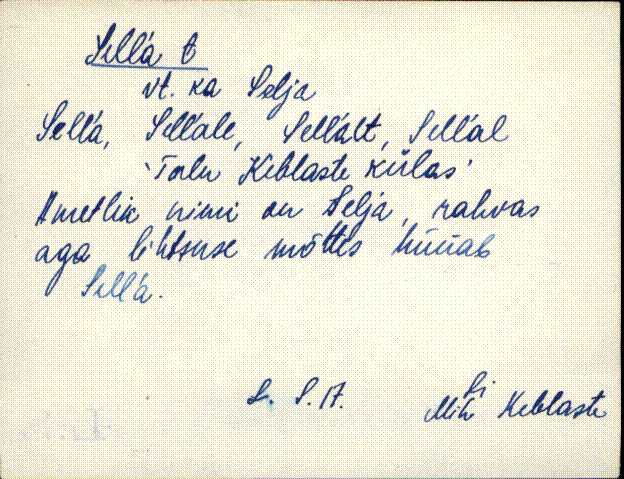 Sell'a t
vt. ka Selja
Sell'a, Sell'ale, Sell'alt, Sell'al
'Talu Keblaste külas'
Ametlik nimi on Selja, rahvas
aga lihtsuse mõttes hüüab
Sell'a.
L. S. 17.
Mih Keblaste